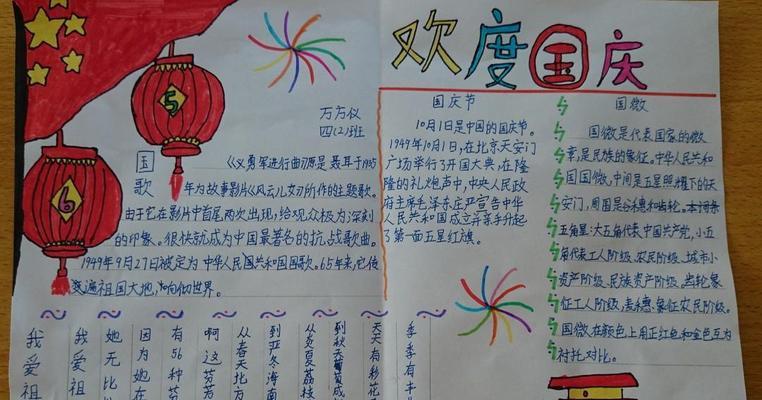 欢度国庆
5
6
万方仪
四(2)班
国歌
《义勇军进行曲》原是聂耳于1935
年为故事影片《风云儿女》所作的主题歌。
由于它在影片中首尾两次出现,给观众极为深刻
的印象。很快就成为中国最著名的抗战歌曲。
1949年9月27日被定为中华人民共和国国歌。65年来,它传
变遍祖国大地,响彻世界。
国庆节
10月1日是中国的国庆节。
1949年10月1日,在北京天安门
广场举行了开国大典,在隆
隆的礼炮声中,中央人民政
府主席毛泽东庄严宣告中华
人民共和国成立并亲手升起
了第一面五星红旗。
国徽
国徽是代表国家的徽
章,是民族的象征。中华人民共和
国国徽,中间是五星照耀下的天
安门,周围是谷穗和齿轮。
五角星:大五角代表中国共产党,小五
角代表工人阶级、农民阶级、城市小
资产阶级、民族资产阶级。齿轮象
征工人阶级,麦穗象征农民阶级。
国徽在颜色上用正红色和金色互为
衬托对比。
我爱祖
我爱祖
她无比
因为她在
有56种芬
啊这芬芳
从春天北方
到亚冬海南
从炎夏荔枝
到秋天葡萄成
天天有鲜花
季季有丰